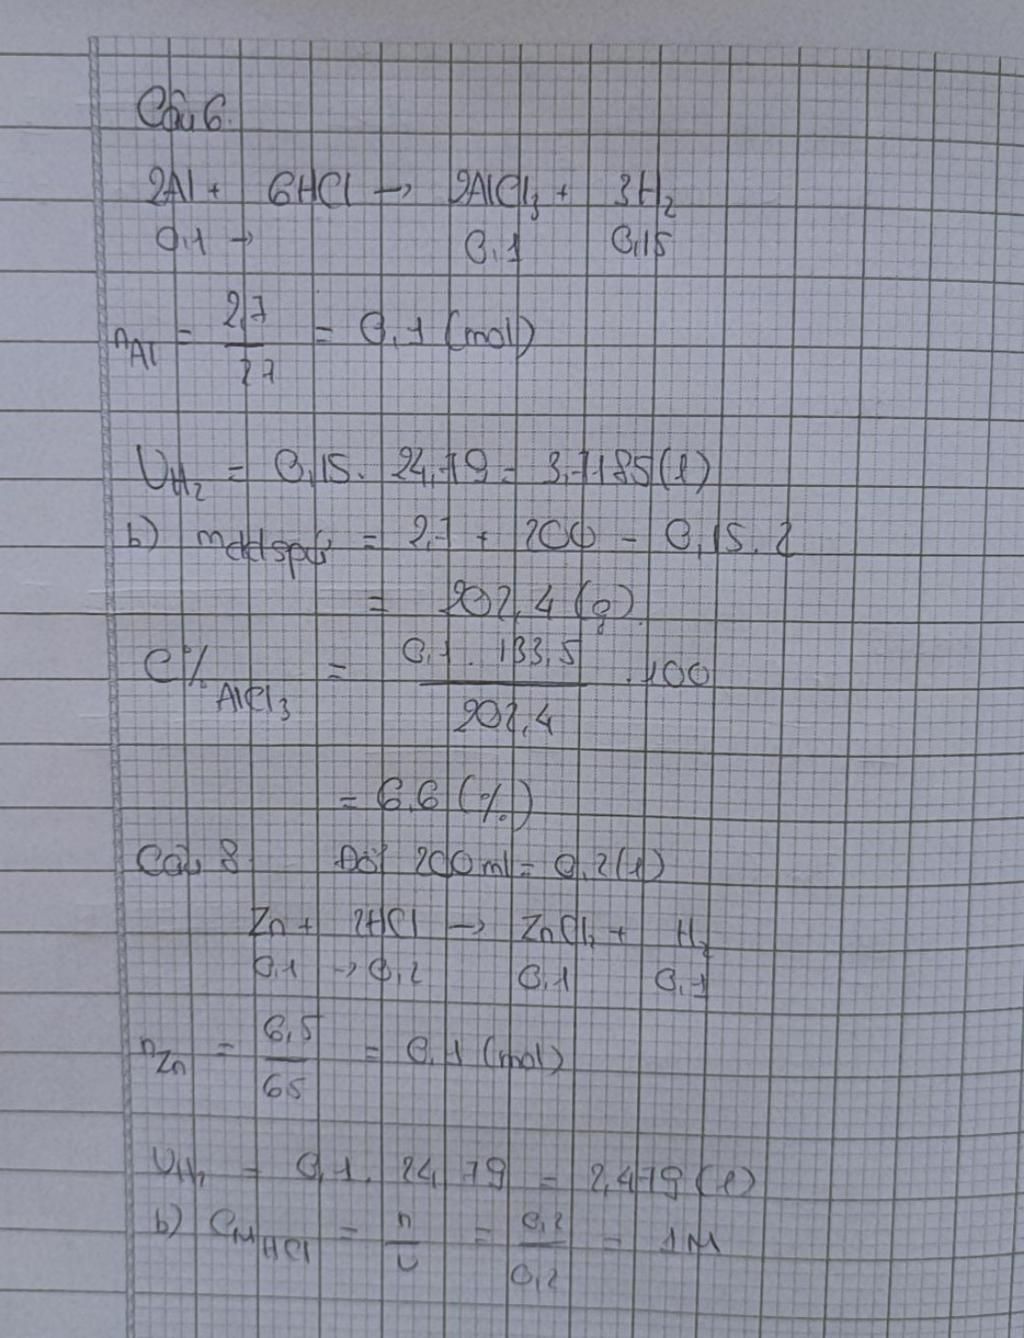 Câu 6.
2Al + 6HCl → 2AlCl₃ + 3H₂
0,1 → 0,1 0,15
nAl = 2,7/27 = 0,1 (mol)
VH₂ = 0,15. 24,79 = 3,7185 (l)
b) mddspứ = 2,7 + 200 - 0,15.2
= 202,4 (g)
C%AlCl₃ = 0,1. 133,5/202,4 .100
= 6,6 (%)
Câu 8 Đổi 200ml = 0,2 (l)
Zn + 2HCl → ZnCl₂ + H₂
0,1 → 0,2 0,1 0,1
nZn = 6,5/65 = 0,1 (mol)
VH₂ = 0,1. 24,79 = 2,479 (l)
b) CMHCl = n/v = 0,2/0,2 = 1M